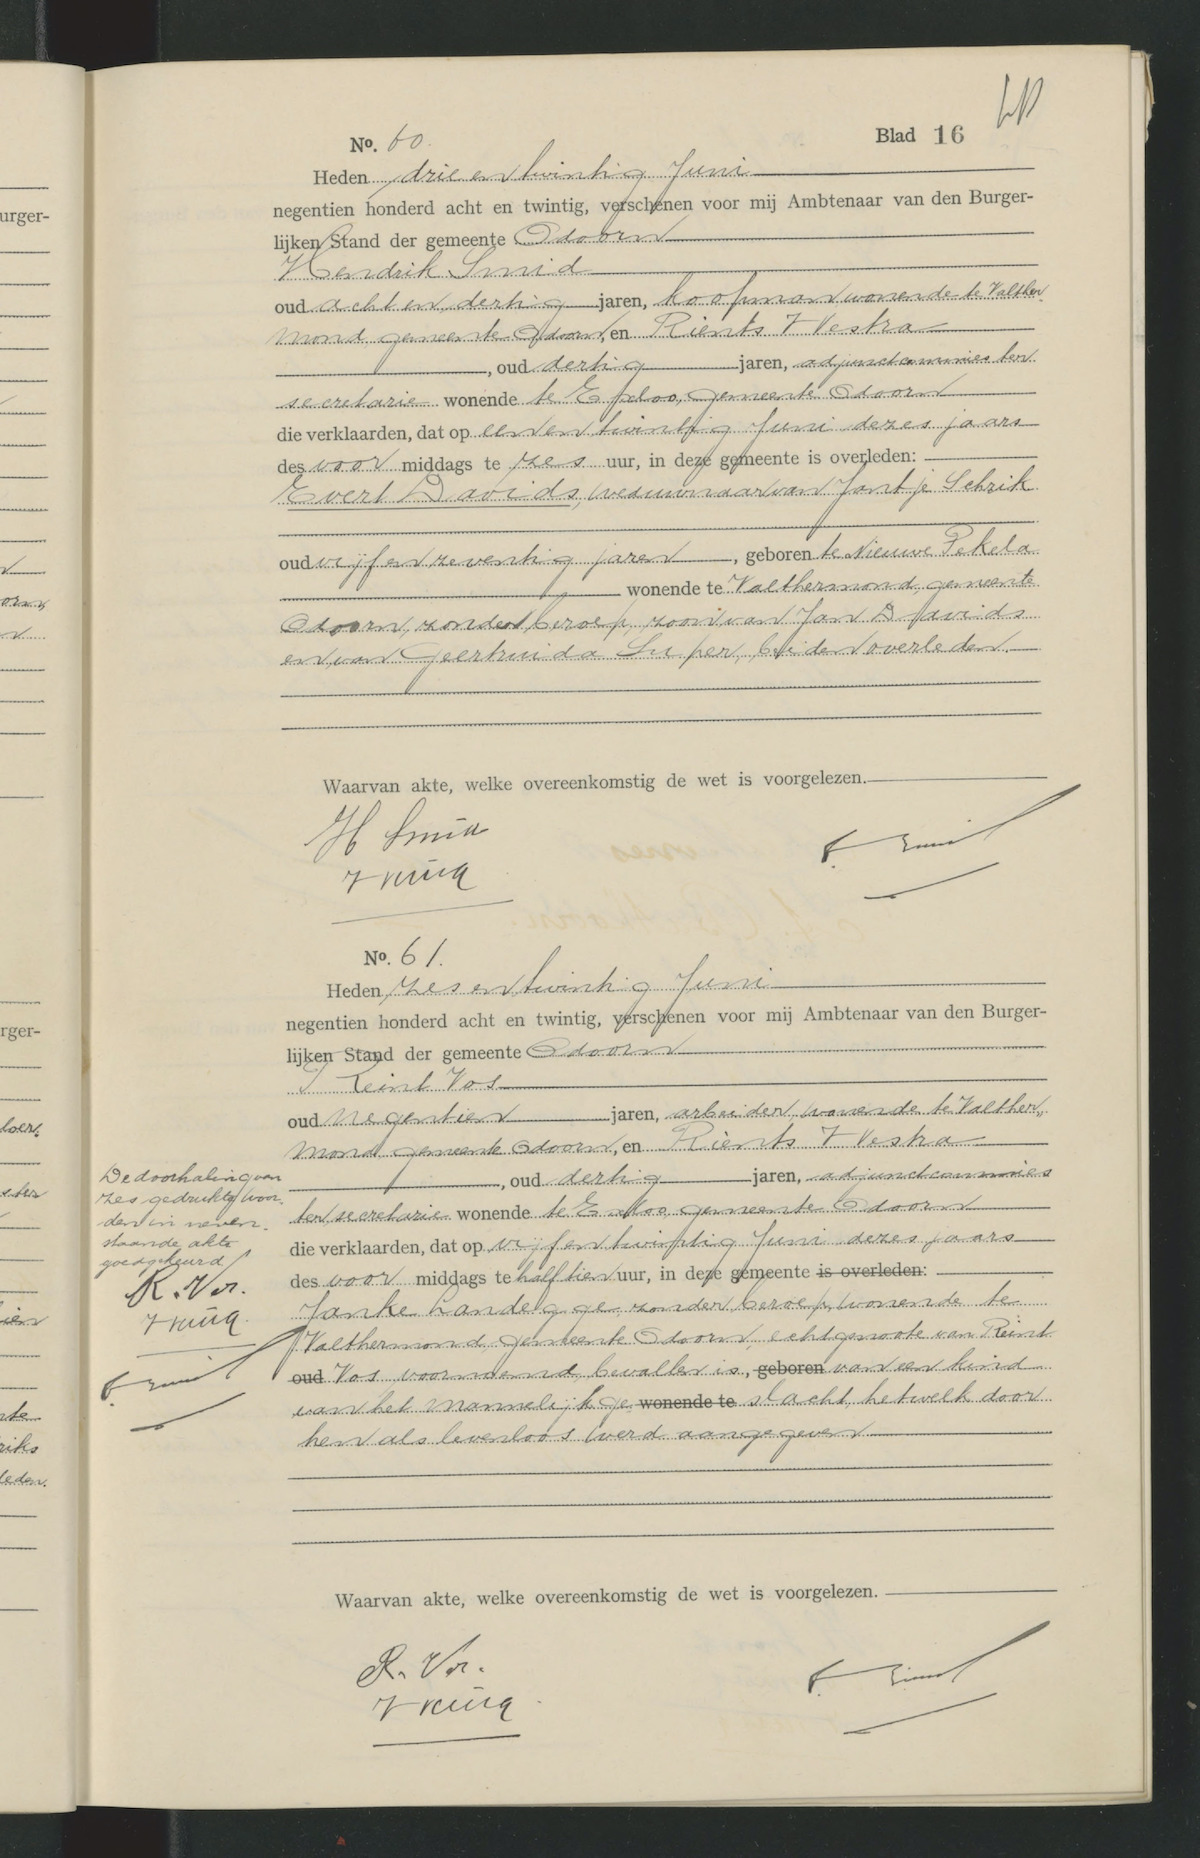 Blad 16
No. 60.
Heden drie en twintig Juni
negentien honderd acht en twintig, verschenen voor mij Ambtenaar van den Burger-
lijken Stand der gemeente Odoorn
Hendrik Smid
oud acht en dertig jaren, koopman wonende te Valther-
mond gemeente Odoorn, en Rients Westra
, oud dertig jaren, adjunct commies ter
secretarie wonende te Exloo, gemeente Odoorn
die verklaarden, dat op een en twintig Juni dezes jaars
des voor middags te zes uur, in deze gemeente is overleden:
Evert Davids, weduwnaar van Jantje Schrik
oud vijf en zeventig jaren, geboren te Nieuwe Pekela
wonende te Valthermond, gemeente
Odoorn, zonder beroep, zoon van Jan Davids
en van Geertruida Super, beiden overleden.
Waarvan akte, welke overeenkomstig de wet is voorgelezen.
H Smid
No. 61.
Heden zes en twintig Juni
negentien honderd acht en twintig, verschenen voor mij Ambtenaar van den Burger-
lijken Stand der gemeente Odoorn
Reint Vos
oud negentien jaren, arbeider, wonende te Valther-
mond gemeente Odoorn, en Rients Westra
, oud dertig jaren, adjunct commies
ter secretarie wonende te Exloo, gemeente Odoorn
die verklaarden, dat op vijf en twintig Juni dezes jaars
des voor middags te half tien uur, in deze gemeente is overleden:
Janke Landegge, zonder beroep, wonende te
Valthermond, gemeente Odoorn, echtgenoote van Reint
oud Vos voornoemd, bevallen is, geboren van een kind
van het mannelijk ge wonende te slacht, hetwelk door
hen als levenloos werd aangegeven
De doorhaling van
zes gedrukte woor-
den in neven-
staande akte
goedgekeurd
R. Vos.
Waarvan akte, welke overeenkomstig de wet is voorgelezen.
R. Vos.